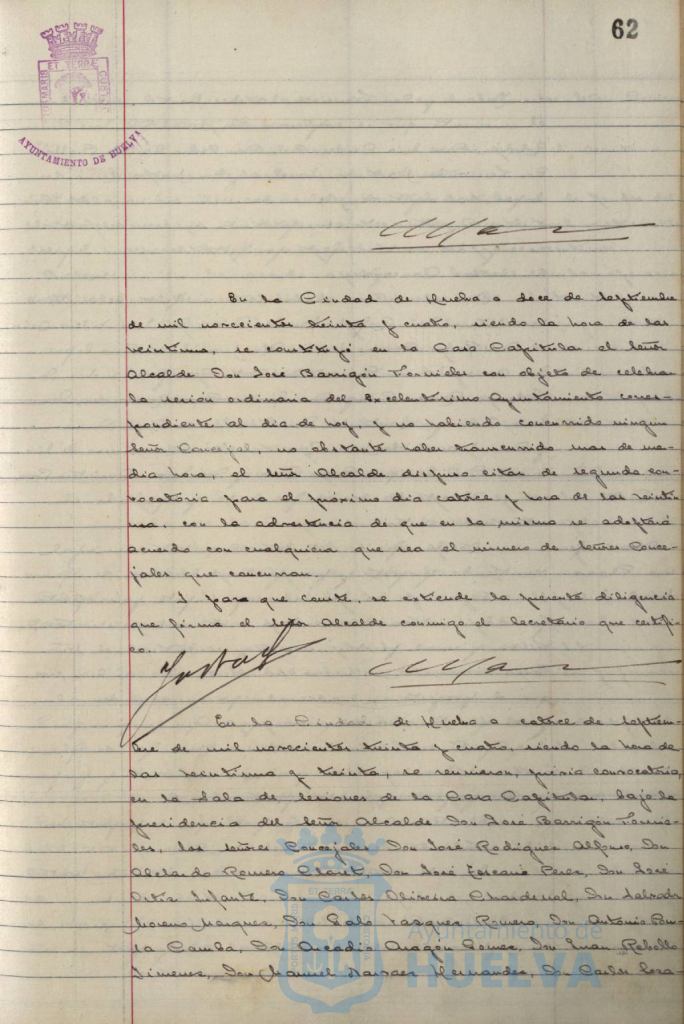 62
PORTUS MARIS ET TERRE CUSTODIA
AYUNTAMIENTO DE HUELVA
En la Ciudad de Huelva a doce de Septiembre
de mil novecientos treinta y cuatro, siendo la hora de las
veintiuna, se constituyó en la Casa Capitular el Señor
Alcalde Don José Barrigón Fornieles con objeto de celebrar
la sesión ordinaria del Excelentísimo Ayuntamiento corres-
pondiente al dia de hoy, y no habiendo concurrido ningún
Señor Concejal, no obstante haber transcurrido mas de me-
dia hora, el Señor Alcalde dispuso citar de segunda con-
vocatoria para el próximo dia catorce y hora de las veintiu-
na, con la advertencia de que en la misma se adoptará
acuerdo con cualquiera que sea el número de Señores Conce-
jales que concurran.
Y para que conste, se extiende la presente diligencia
que firma el Señor Alcalde conmigo el Secretario que certifi-
co.
En la Ciudad de Huelva a catorce de Septiem-
bre de mil novecientos treinta y cuatro, siendo la hora de
las veintiuna y treinta, se reunieron, previa convocatoria,
en la Sala de Sesiones de la Casa Capitular, bajo la
presidencia del Señor Alcalde Don José Barrigón Fornie-
les, los señores Concejales Don José Rodriguez Alfonso, Don
Abelardo Romero Claret, Don José Perez, Don José
Ortiz Infante, Don Carlos Oliveira Chardenal, Don Salvador
Moreno Marquez, Don Vazquez Romero, Don Antonio Pon-
ce Camba, Don Arcadio Aragón Gomez, Don Juan Rebollo
Jimenez, Don Manuel Narvaez Hernandez, Don Carlos
Ayuntamiento de
HUELVA